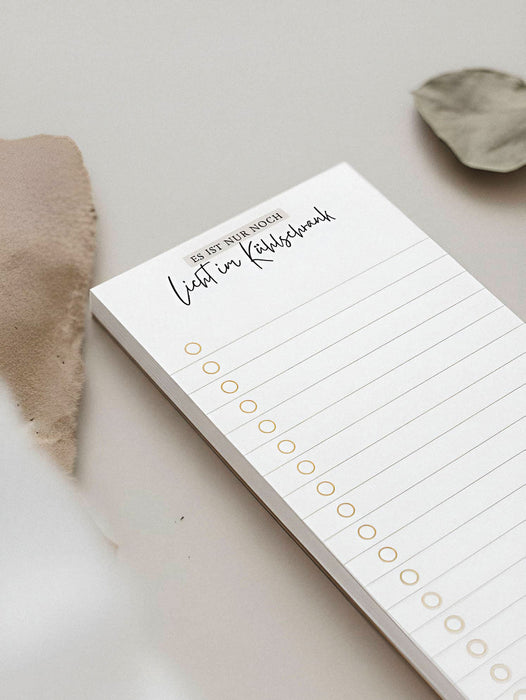 ES IST NUR NOCH
Licht im Kühlschrank